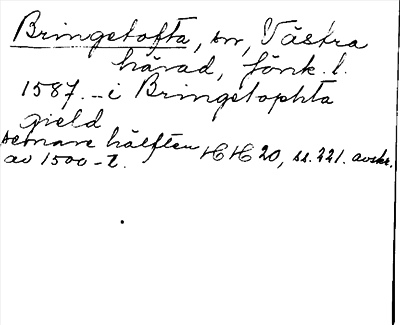 Bringetofta, sn, Västra
härad, Jönk. l.
1587. – i Bringetophta
gield
senare hälften HH 20, s. 221. avskr.
av 1500-t.